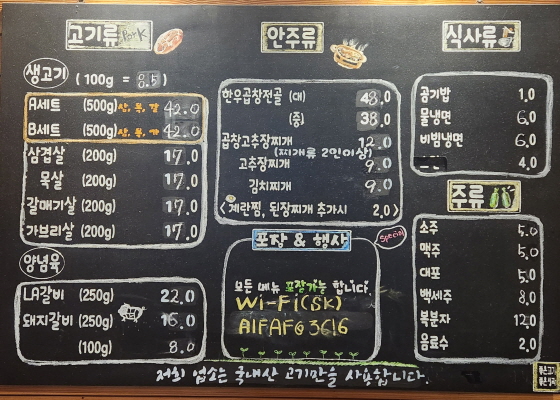 고기류 Pork
생고기 (100g = 8.5)
A세트 (500g) 삼, 목, 갈 42.0
B세트 (500g) 삼, 목, 가 42.0
삼겹살 (200g) 17.0
목살 (200g) 17.0
갈매기살 (200g) 17.0
가브리살 (200g) 17.0
양념육
LA갈비 (250g) 22.0
돼지갈비 (250g) 16.0
(100g) 8.0
안주류
한우곱창전골 (대) 48.0
(중) 38.0
곱창고추장찌개 12.0
(찌개류 2인이상)
고추장찌개 9.0
김치찌개 9.0
< 계란찜, 된장찌개 추가시 2.0 >
포장 & 행사
special
모든 메뉴 포장가능 합니다.
Wi-Fi(SK)
A1FAFG3616
식사류
공기밥 1.0
물냉면 6.0
비빔냉면 6.0
4.0
주류
소주 5.0
맥주 5.0
대포 5.0
백세주 8.0
복분자 12.0
음료수 2.0
저희 업소는 국내산 고기만을 사용합니다.